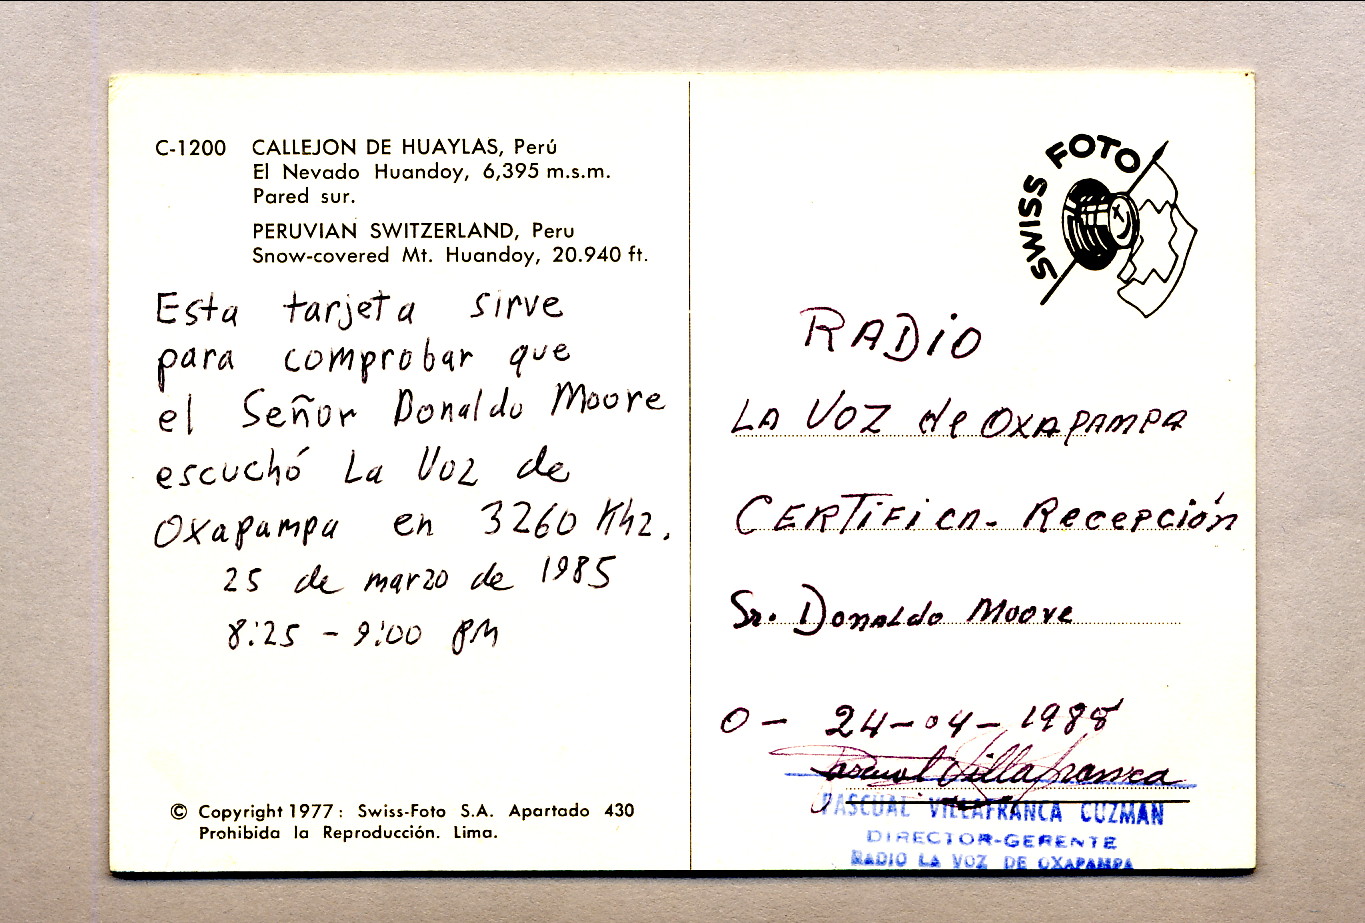 C-1200 CALLEJON DE HUAYLAS, Perú
El Nevado Huandoy, 6,395 m.s.m.
Pared sur.
PERUVIAN SWITZERLAND, Peru
Snow-covered Mt. Huandoy, 20.940 ft.
Esta tarjeta sirve
para comprobar que
el Señor Donaldo Moore
escuchó La Voz de
Oxapampa en 3260 Khz.
25 de marzo de 1985
8:25 - 9:00 PM
© Copyright 1977: Swiss-Foto S.A. Apartado 430
Prohibida la Reproducción. Lima.
SWISS FOTO
RADIO
LA VOZ de OXAPAMPA
CERTIFICA - Recepción
Sr. Donaldo Moore
O - 24-04-1988
Pascual Villafranca
PASCUAL VILLAFRANCA CUZMAN
DIRECTOR-GERENTE
RADIO LA VOZ DE OXAPAMPA